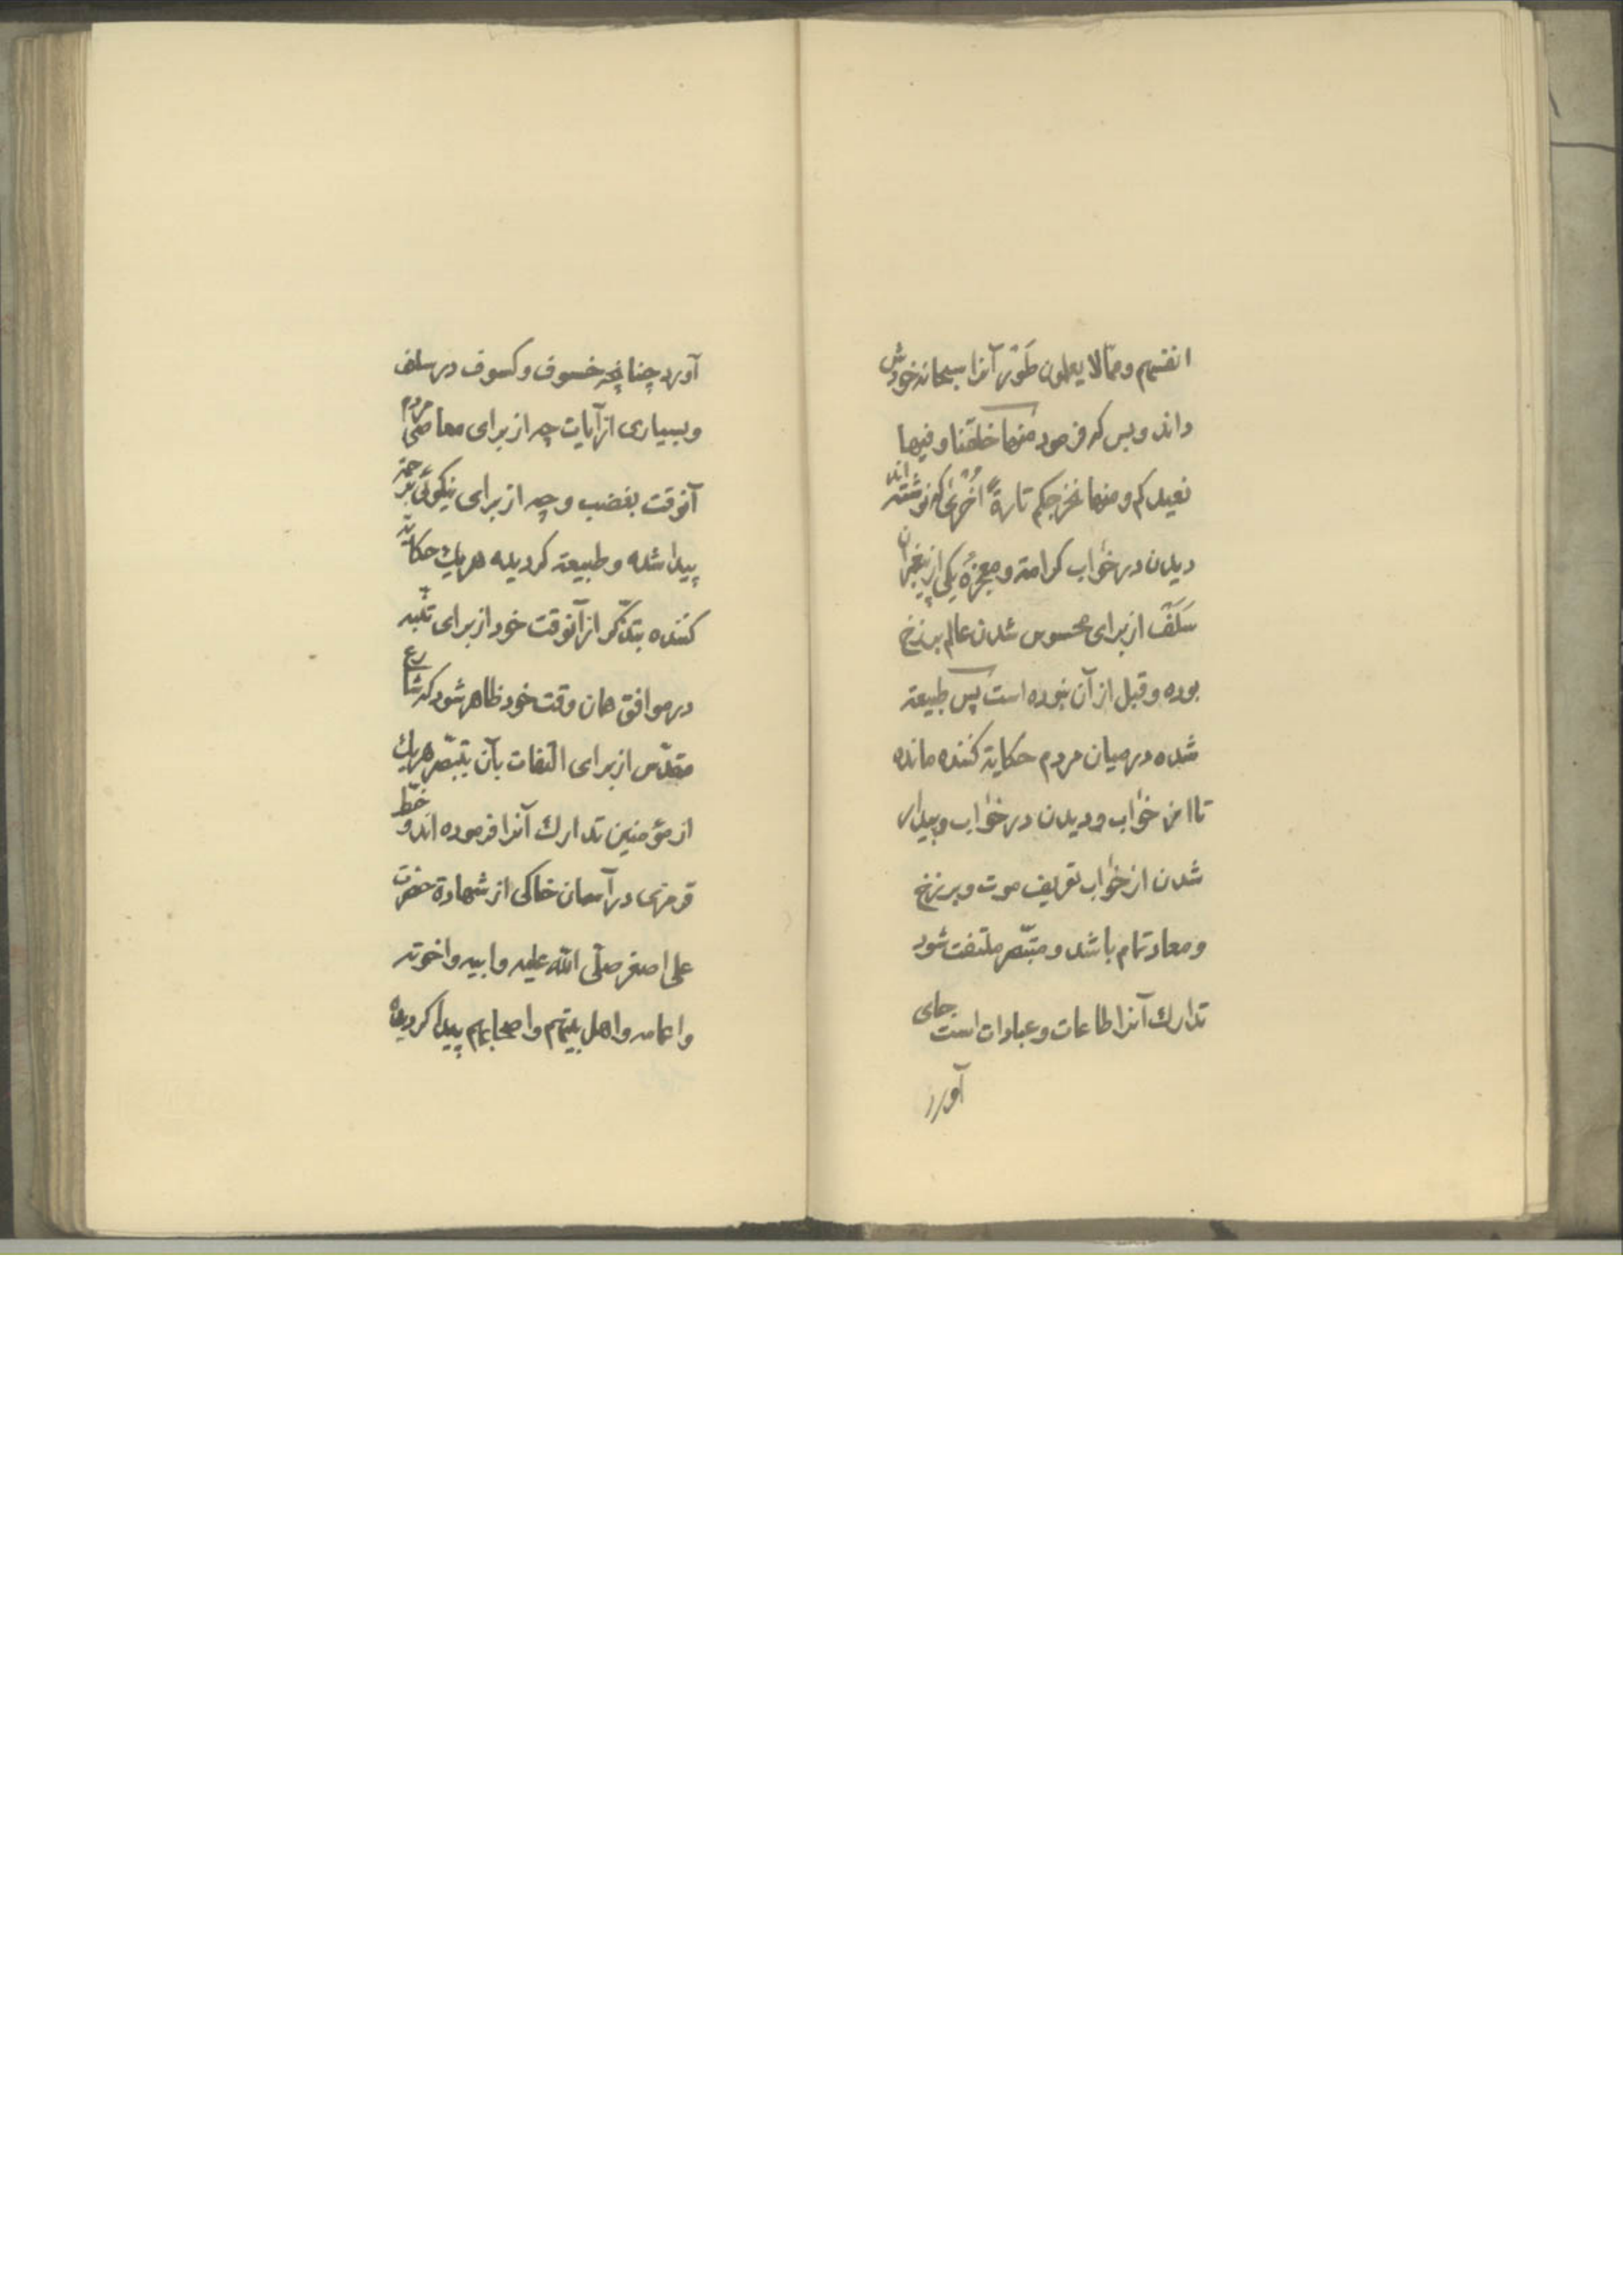 انفسهم و ممّا لا یعلمون طَوْر آنرا سبحانه خودش
داند و بس که فرمود منها خلقنا و فیها
نعیدکم و منها نخرجکم تارةً اُخْرٰی که نوشته‌اند
دیدن در خواب کرامة و معجزهٔ یکی از پیغمبران
سَلَفَ از برای محسوس شدن عالم برزخ
بوده و قبل از آن نبوده است پس طبیعة
شده در میان مردم حکایة کننده مانده
تا این خواب و دیدن در خواب و بیدار
شدن از خواب تعریف موت و برزخ
و معاد تمام باشد و متبصّر ملتفت شود
تدارك آنرا طاعات و عبادات است بجای
آورد
آورد چنانچه خسوف و کسوف در سلف
و بسیاری از آیات چه از برای معاصی مردم
آنوقت بغضب و چه از برای نیکوئی برحمة
پیدا شده و طبیعة کردیده هریك حکایة
کننده بتذکّر از آنوقت خود از برای تنبّه
در موافق همان وقت خود ظاهر شود که شارع
مقدّس از برای التفات بآن بتبصّر هریك
از مؤمنین تدارك آنرا فرموده اند و خطّ
قرمزی در آسمان خاکی از شهادة حضرت
علی اصغر صلّی اللّه علیه و ابیه و اخوته
و اعمامه و اهل بیتهم و اصحابهم پیدا کردیده